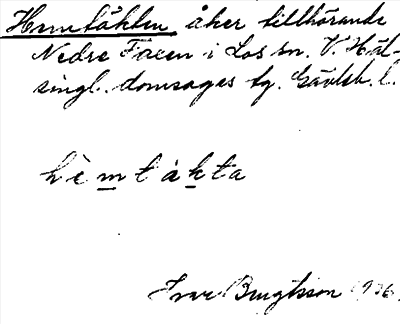 Hemtäkten, åker tillhörande
Nedre Faxen i Los sn. V. Häl-
singl. domsagas tg. Gävleb. l.
hèmtákta
Ivar Bengtsson 1936